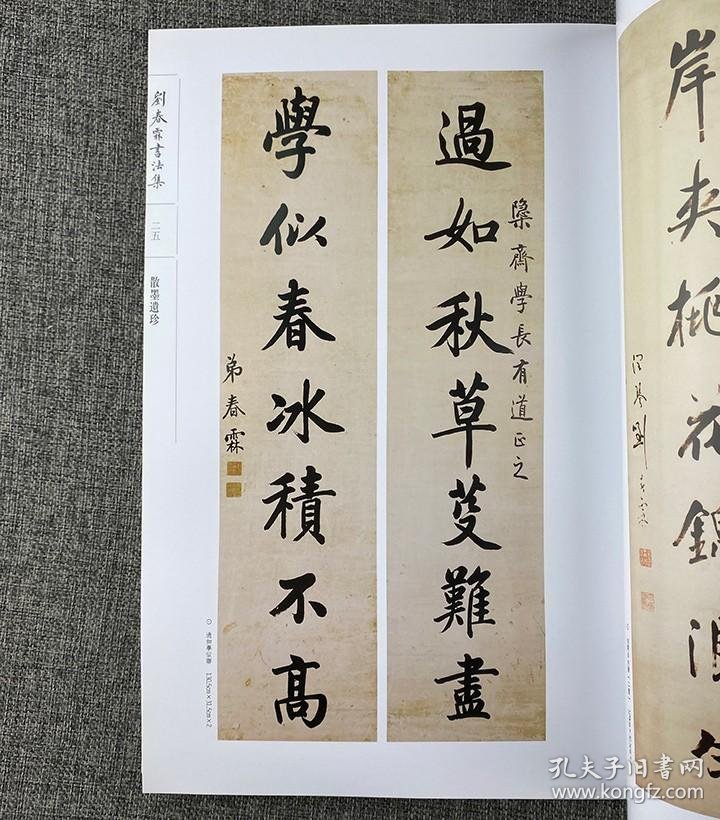 劉春霖書法集
二五
散墨遺珍
過如秋草芟難盡
學似春冰積不高
齋學長有道正之
弟春霖
過如學似聯 130.5cm×31.5cm×2
岸夾桃花錦浪
孔夫子旧书网
www.kongfz.com